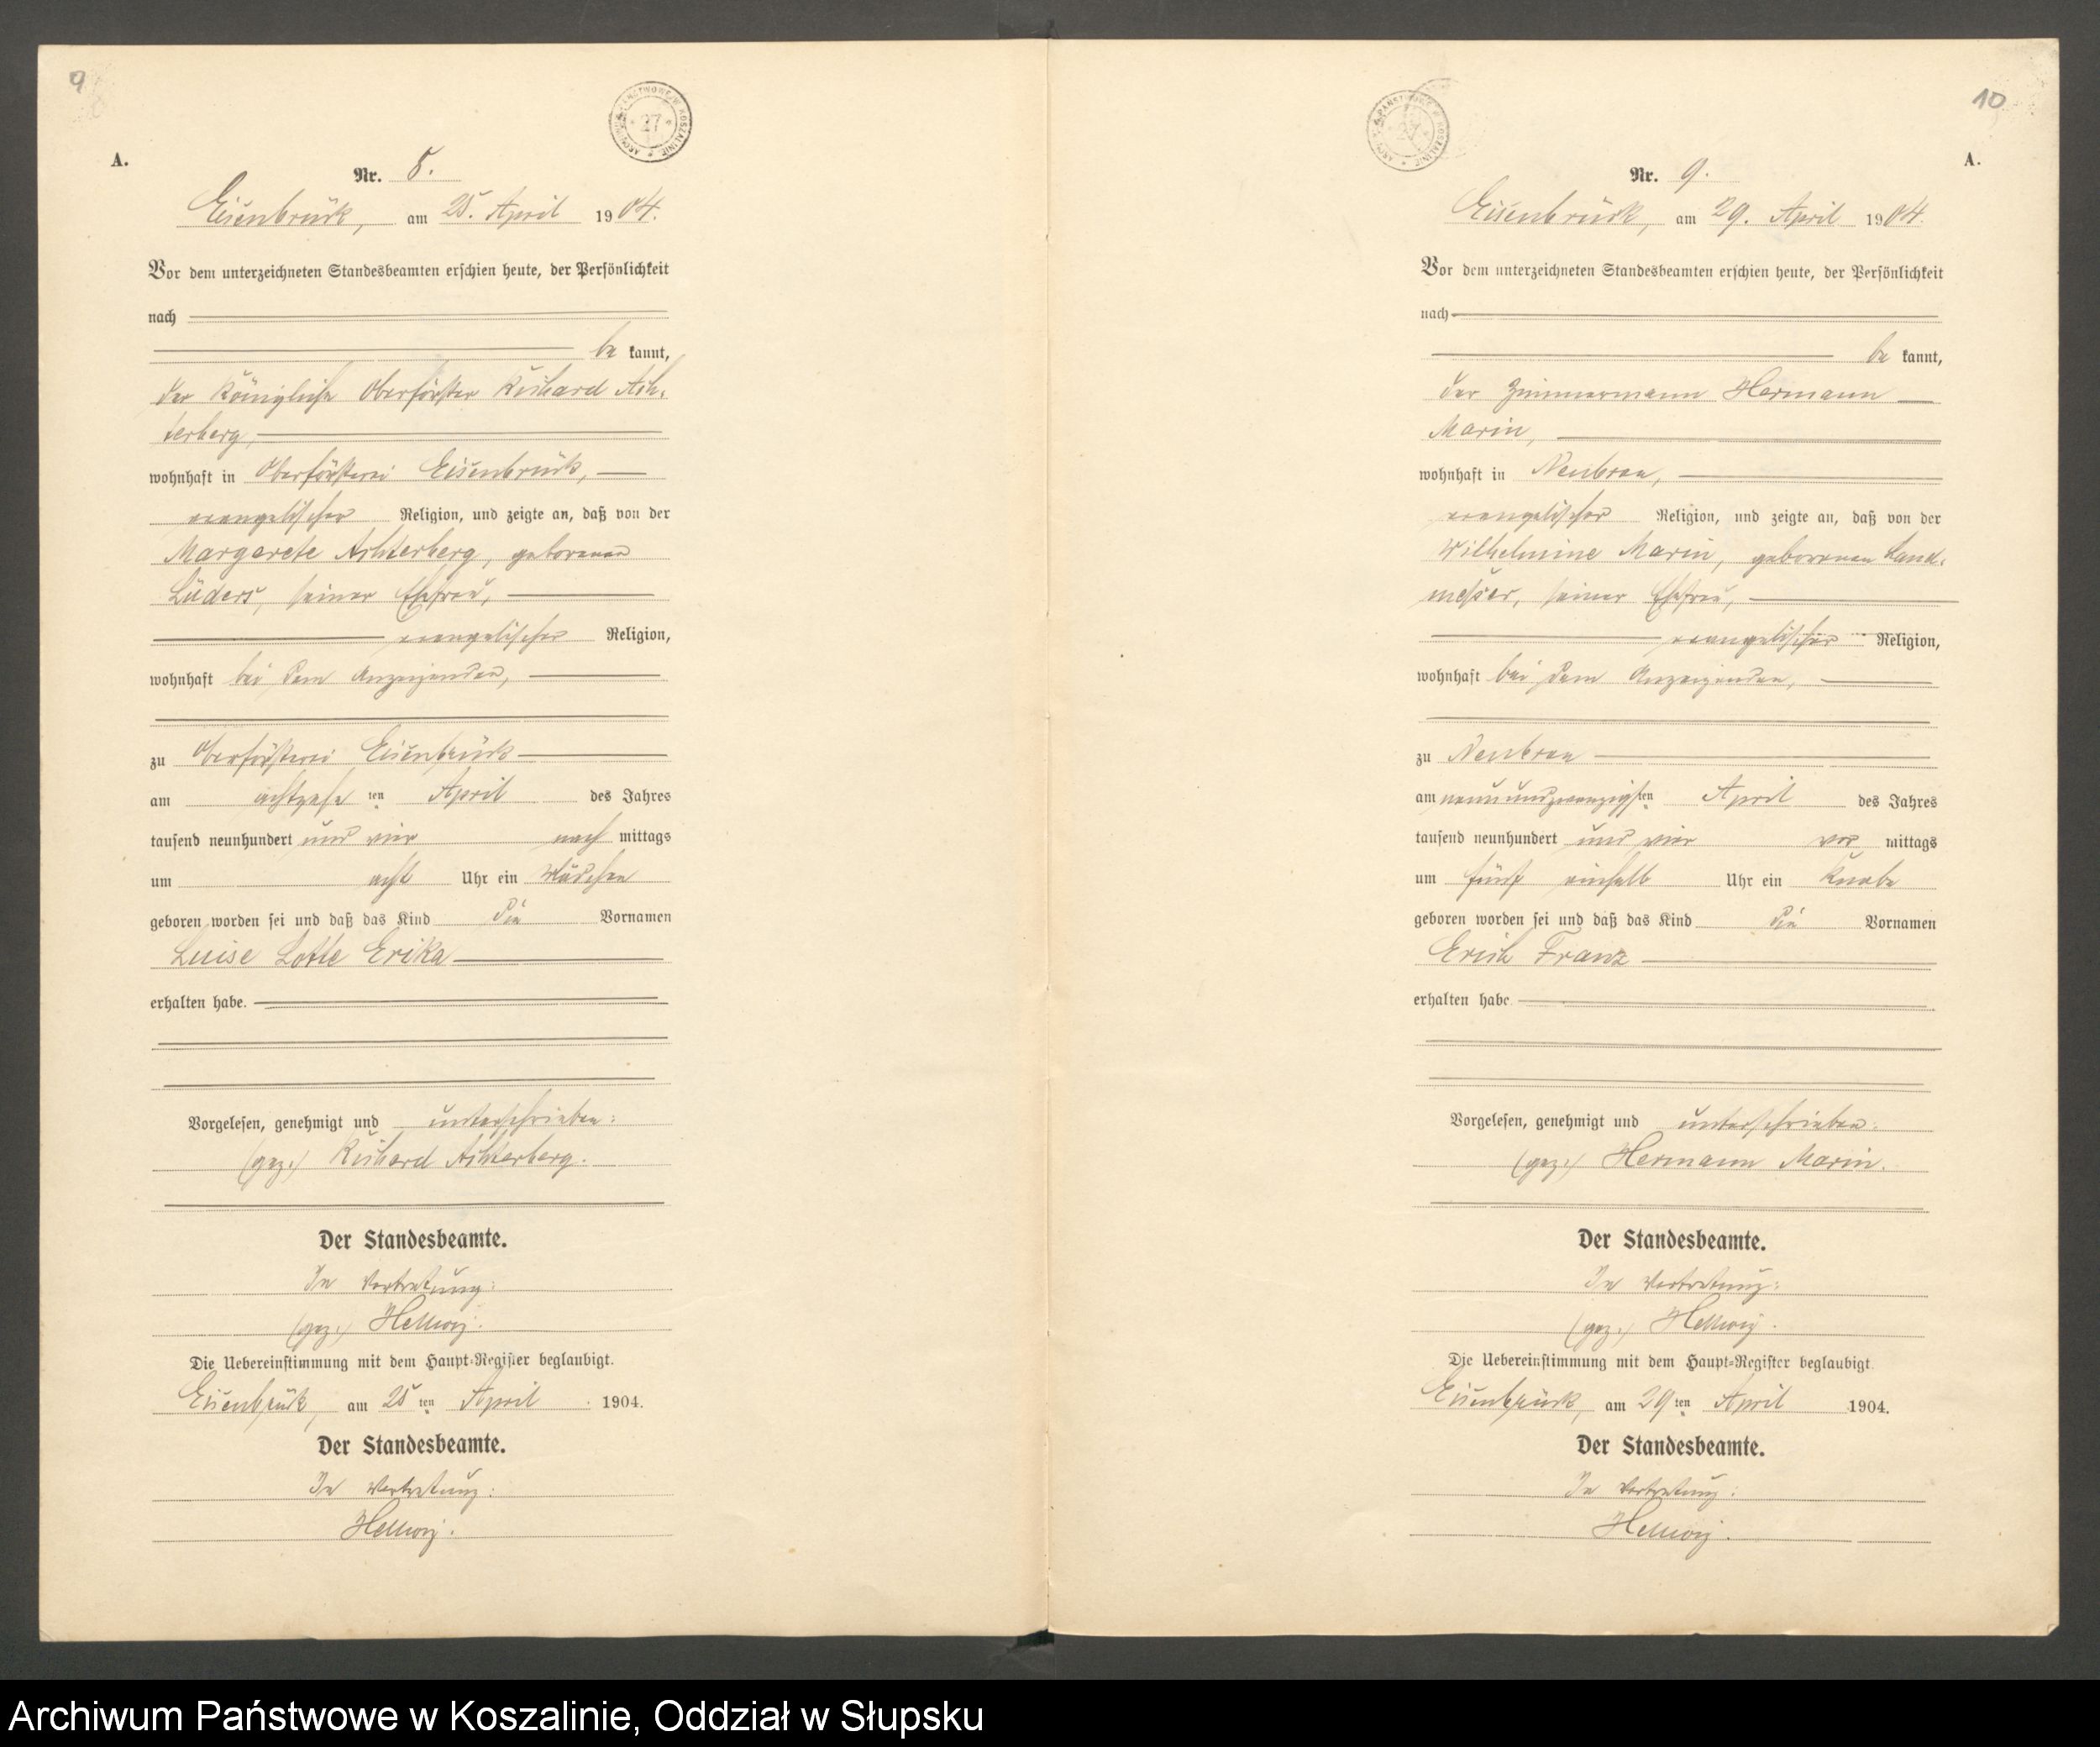 9
ARCHIWUM PAŃSTWOWE W KOSZALINIE
27
A.
Nr. 8.
Eisenbrück, am 25. April 1904.
Vor dem unterzeichneten Standesbeamten erschien heute, der Persönlichkeit
nach
be kannt,
der Königliche Oberförster Richard Ach-
terberg,
wohnhaft in Oberförsterei Eisenbrück,
evangelischer Religion, und zeigte an, daß von der
Margarete Achterberg, geborenen
Lüders, seiner Ehefrau,
evangelischer Religion,
wohnhaft bei dem Anzeigenden,
zu Oberförsterei Eisenbrück
am achtzehn ten April des Jahres
tausend neunhundert und vier nach mittags
um acht Uhr ein Mädchen
geboren worden sei und daß das Kind die Vornamen
Luise Lotte Erika
erhalten habe.
Vorgelesen, genehmigt und unterschrieben:
(gez.) Richard Achterberg.
Der Standesbeamte.
In Vertretung:
(gez.) Hellwig.
Die Uebereinstimmung mit dem Haupt-Register beglaubigt.
Eisenbrück, am 25 ten April 1904.
Der Standesbeamte.
In Vertretung:
Hellwig.
10
A.
Nr. 9.
Eisenbrück, am 29. April 1904.
Vor dem unterzeichneten Standesbeamten erschien heute, der Persönlichkeit
nach
be kannt,
der Zimmermann Hermann
Marin,
wohnhaft in Neubraa,
evangelischer Religion, und zeigte an, daß von der
Wilhelmine Marin, geborenen Land-
messer, seiner Ehefrau,
evangelischer Religion,
wohnhaft bei dem Anzeigenden,
zu Neubraa
am neunundzwanzigsten April des Jahres
tausend neunhundert und vier vor mittags
um fünf einhalb Uhr ein Knabe
geboren worden sei und daß das Kind die Vornamen
Erich Franz
erhalten habe
Vorgelesen, genehmigt und unterschrieben:
(gez.) Hermann Marin.
Der Standesbeamte.
In Vertretung:
(gez.) Hellwig.
Die Uebereinstimmung mit dem Haupt-Register beglaubigt.
Eisenbrück, am 29 ten April 1904.
Der Standesbeamte.
In Vertretung:
Hellwig.
Archiwum Państwowe w Koszalinie, Oddział w Słupsku